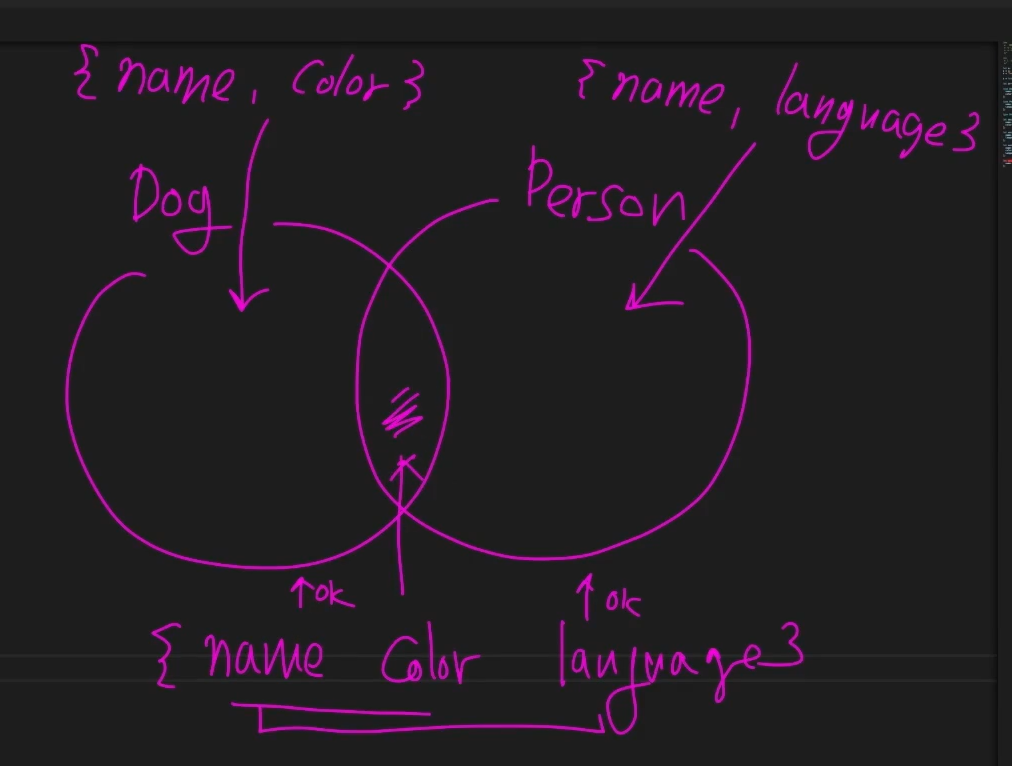 { name, Color }
{ name, language }
Dog
Person
↑ ok
↑ ok
{ name Color language }